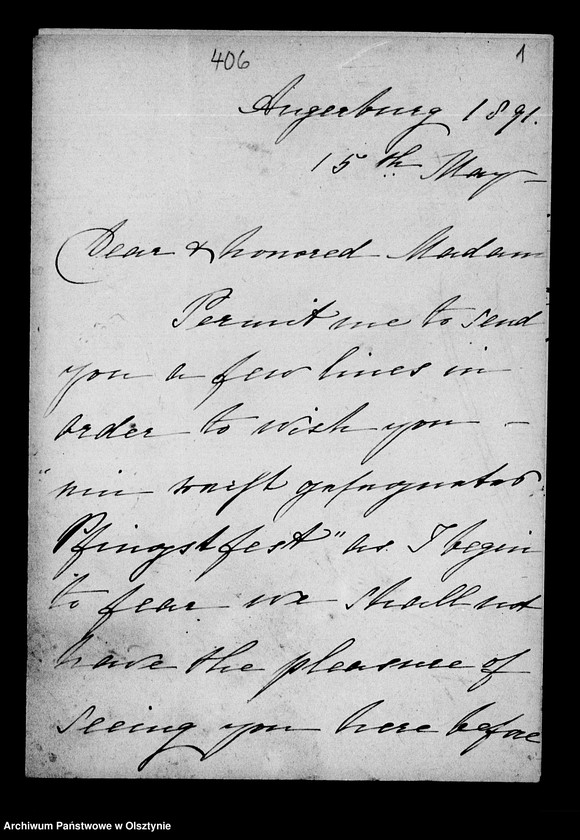 406 1
Angerburg 1891.
15th May —
Dear & honored Madam
Permit me to send
you a few lines in
order to wish you —
"ein recht gesegnetes
Pfingstfest" as I begin
to fear we shall not
have the pleasure of
seeing you here before
Archiwum Państwowe w Olsztynie